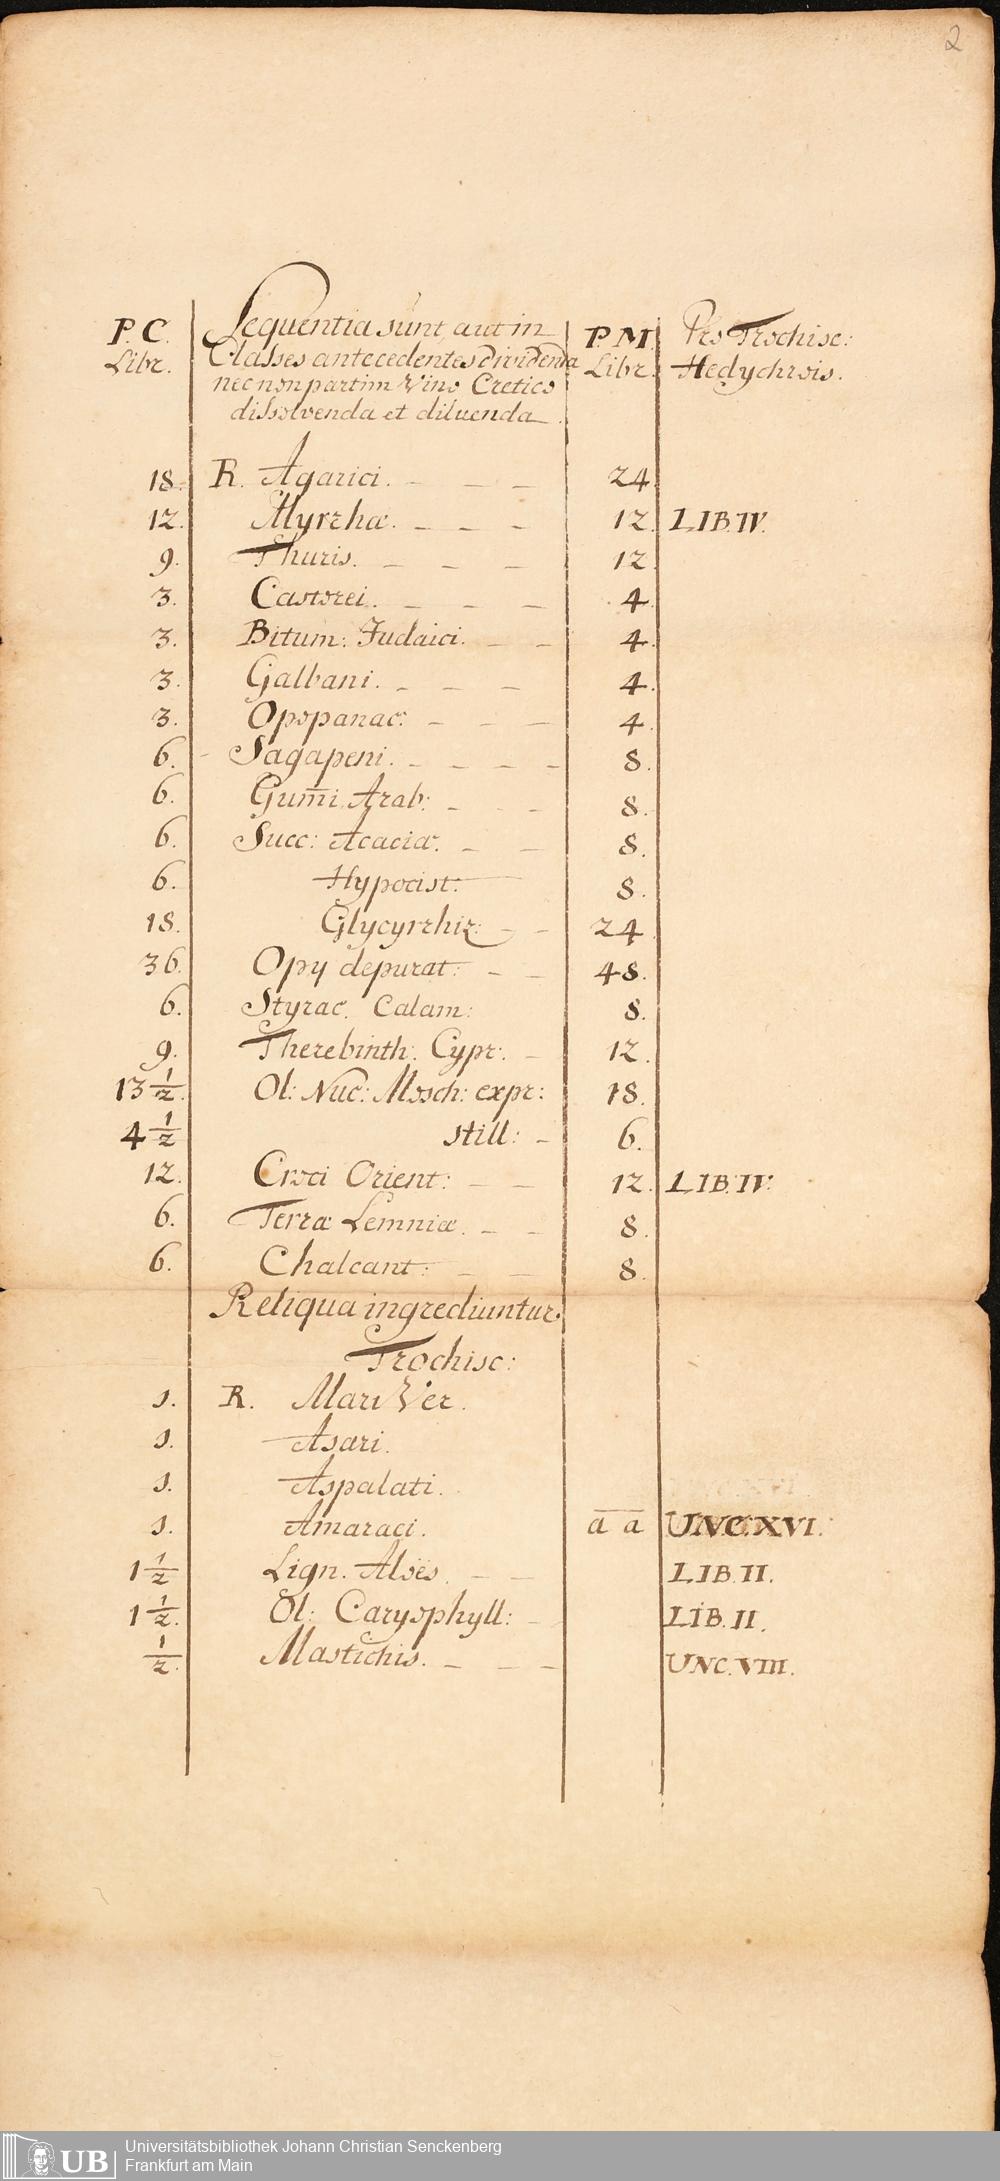 2
P. C. Sequentia sunt, aut in P. M. Pro Trochisc:
Libr. Classes antecedentes dividenda Libr. Hedychrois.
nec non partim Vino Cretico
dissolvenda et diluenda
18. R. Agarici. - - - 24
12. Myrrhæ. - - - 12. LIB. IV.
9. Thuris. - - - 12
3. Castorei. - - - 4.
3. Bitum: Judaici. - - 4.
3. Galbani. - - - 4.
3. Opopanac: - - - 4
6. - Sagapeni. - - - - 8.
6. Gum̄i Arab: - - - 8.
6. Succ: Acaciæ. - - 8.
6. Hypocist: 8.
18. Glycyrrhiz: - - 24
36. Opy depurat: - - 48.
6. Styrac. Calam: 8.
9. Therebinth: Cypr: - 12.
13 1/2. Ol: Nuc: Mosch: expr: 18.
4 1/2 still: - 6.
12. Croci Orient: - - 12. LIB. IV.
6. Terræ Lemniæ. - - 8.
6. Chalcant: - - 8.
Reliqua ingrediuntur
Trochisc:
1. R. Mari Ver.
1. Asari.
1. Aspalati.
1. Amaraci. a a UNC. XVI.
1 1/2 Lign. Aloës. - - LIB. II.
1 1/2. Ol: Caryophyll: - LIB. II.
1/2. Mastichis. - - - UNC. VIII.
UB Universitätsbibliothek Johann Christian Senckenberg
Frankfurt am Main